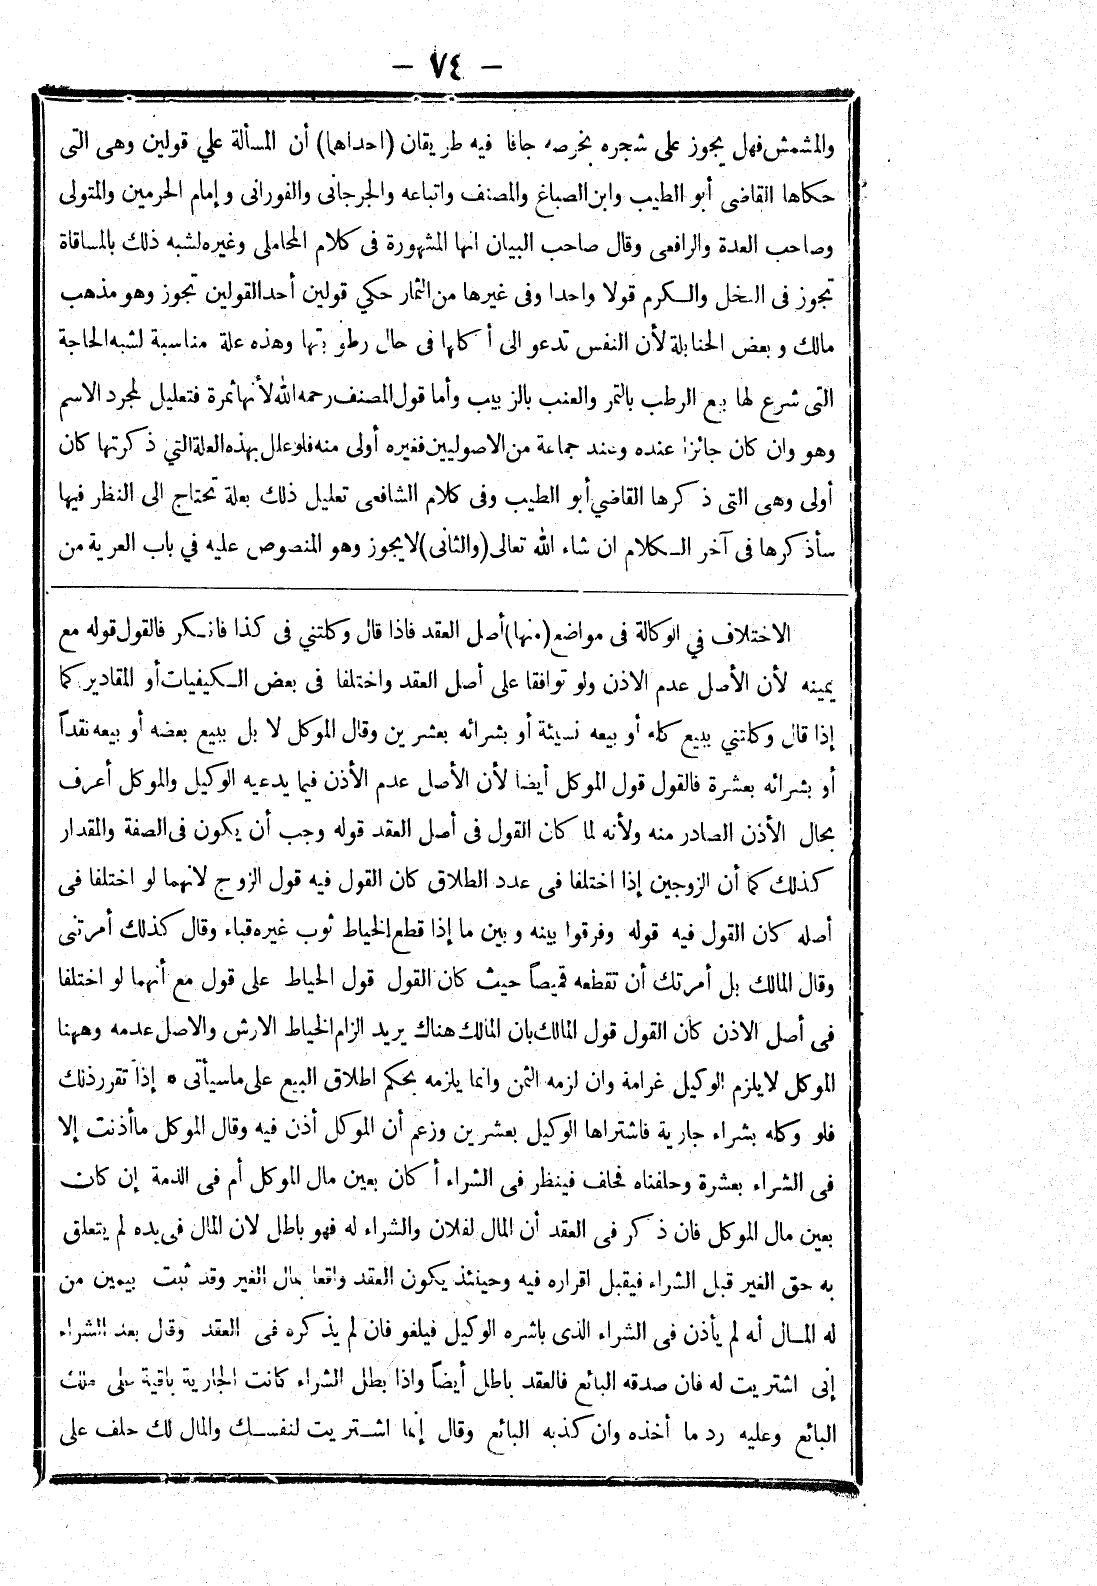 — ٧٤ —
والمشمش فهل يجوز على شجره بخرصه جافا فيه طريقان (احداها) أن المسألة علي قولين وهى التى
حكاها القاضى أبو الطيب وابن الصباغ والمصنف واتباعه والجرجانى والفورانى وإمام الحرمين والمتولى
وصاحب العدة والرافعى وقال صاحب البيان انها المشهورة فى كلام المحاملى وغيره لشبه ذلك بالمساقاة
تجوز فى النخل والكرم قولا واحدا وفى غيرها من الثمار حكي قولين أحد القولين تجوز وهو مذهب
مالك وبعض الحنابلة لأن النفس تدعو الى أكلها فى حال رطوبتها وهذه علة مناسبة لشبه الحاجة
التى شرع لها بيع الرطب بالتمر والعنب بالزبيب وأما قول المصنف رحمه الله لأنها ثمرة فتعليل لمجرد الاسم
وهو وان كان جائزا عنده وعند جماعة من الاصوليين فغيره أولى منه فلو علل بهذه العلة التي ذكرتها كان
أولى وهى التى ذكرها القاضي أبو الطيب وفى كلام الشافعى تعليل ذلك بعلة تحتاج الى النظر فيها
سأذكرها فى آخر الكلام ان شاء الله تعالى (والثانى) لايجوز وهو المنصوص عليه في باب العرية من
الاختلاف في الوكالة فى مواضع (منها) أصل العقد فاذا قال وكلتني فى كذا فانكر فالقول قوله مع
يمينه لأن الأصل عدم الاذن ولو توافقا على أصل العقد واختلفا فى بعض الكيفيات أو المقادير كما
إذا قال وكلتني ببيع كله أو بيعه نسيئة أو بشرائه بعشرين وقال الموكل لا بل ببيع بعضه أو بيعه نقداً
أو بشرائه بعشرة فالقول قول الموكل أيضا لأن الأصل عدم الأذن فيما يدعيه الوكيل والموكل أعرف
بحال الأذن الصادر منه ولأنه لما كان القول فى أصل العقد قوله وجب أن يكون فى الصفة والمقدار
كذلك كما أن الزوجين إذا اختلفا فى عدد الطلاق كان القول فيه قول الزوج لانهما لو اختلفا فى
أصله كان القول فيه قوله وفرقوا بينه وبين ما إذا قطع الخياط ثوب غيره قباء وقال كذلك أمرتنى
وقال المالك بل أمرتك أن تقطعه قميصاً حيث كان القول قول الخياط على قول مع أنهما لو اختلفا
فى أصل الاذن كان القول قول المالك بان المالك هناك يريد الزام الخياط الارش والاصل عدمه وههنا
الموكل لايلزم الوكيل غرامة وان لزمه الثمن وانما يلزمه بحكم اطلاق البيع على ماسيأتى * إذا تقرر ذلك
فلو وكله بشراء جارية فاشتراها الوكيل بعشرين وزعم أن الموكل أذن فيه وقال الموكل ماأذنت إلا
فى الشراء بعشرة وحلفناه فحلف فينظر فى الشراء أكان بعين مال الموكل أم فى الذمة إن كان
بعين مال الموكل فان ذكر فى العقد أن المال لفلان والشراء له فهو باطل لان المال فى يده لم يتعلق
به حق الغير قبل الشراء فيقبل اقراره فيه وحينئذ يكون العقد واقعا بمال الغير وقد ثبت بيمين من
له المال أنه لم يأذن فى الشراء الذى باشره الوكيل فيلغو فان لم يذكره فى العقد وقال بعد الشراء
إنى اشتريت له فان صدقه البائع فالعقد باطل أيضاً واذا بطل الشراء كانت الجارية باقية على ملك
البائع وعليه رد ما أخذه وان كذبه البائع وقال إنما اشتريت لنفسك والمال لك حلف على